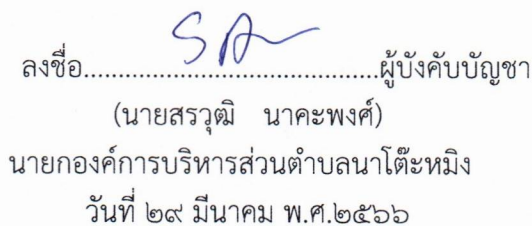 ลงชื่อ......................................ผู้บังคับบัญชา
(นายสรวุฒิ นาคะพงศ์)
นายกองค์การบริหารส่วนตำบลนาโต๊ะหมิง
วันที่ ๒๙ มีนาคม พ.ศ.๒๕๖๖